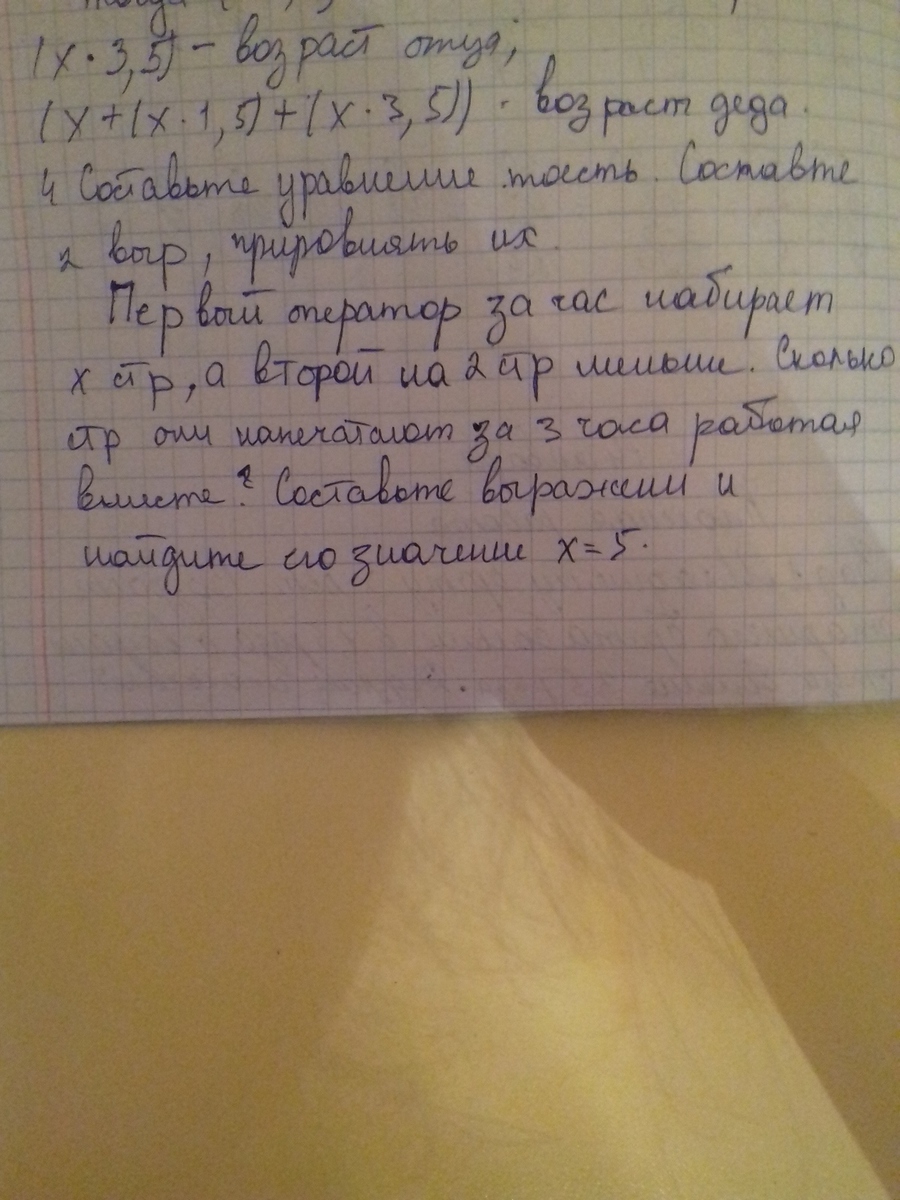 (х · 3,5) – возраст отца;
(х + (х · 1,5) + (х · 3,5)) - возраст деда.
4 Составьте уравнение тоесть. Составте
2 выр, прировнять их.
Первый оператор за час набирает
х стр, а второй на 2 стр меньше. Сколько
стр они напечатают за 3 часа работая
вместе? Составьте выражени и
найдите его значение х = 5.